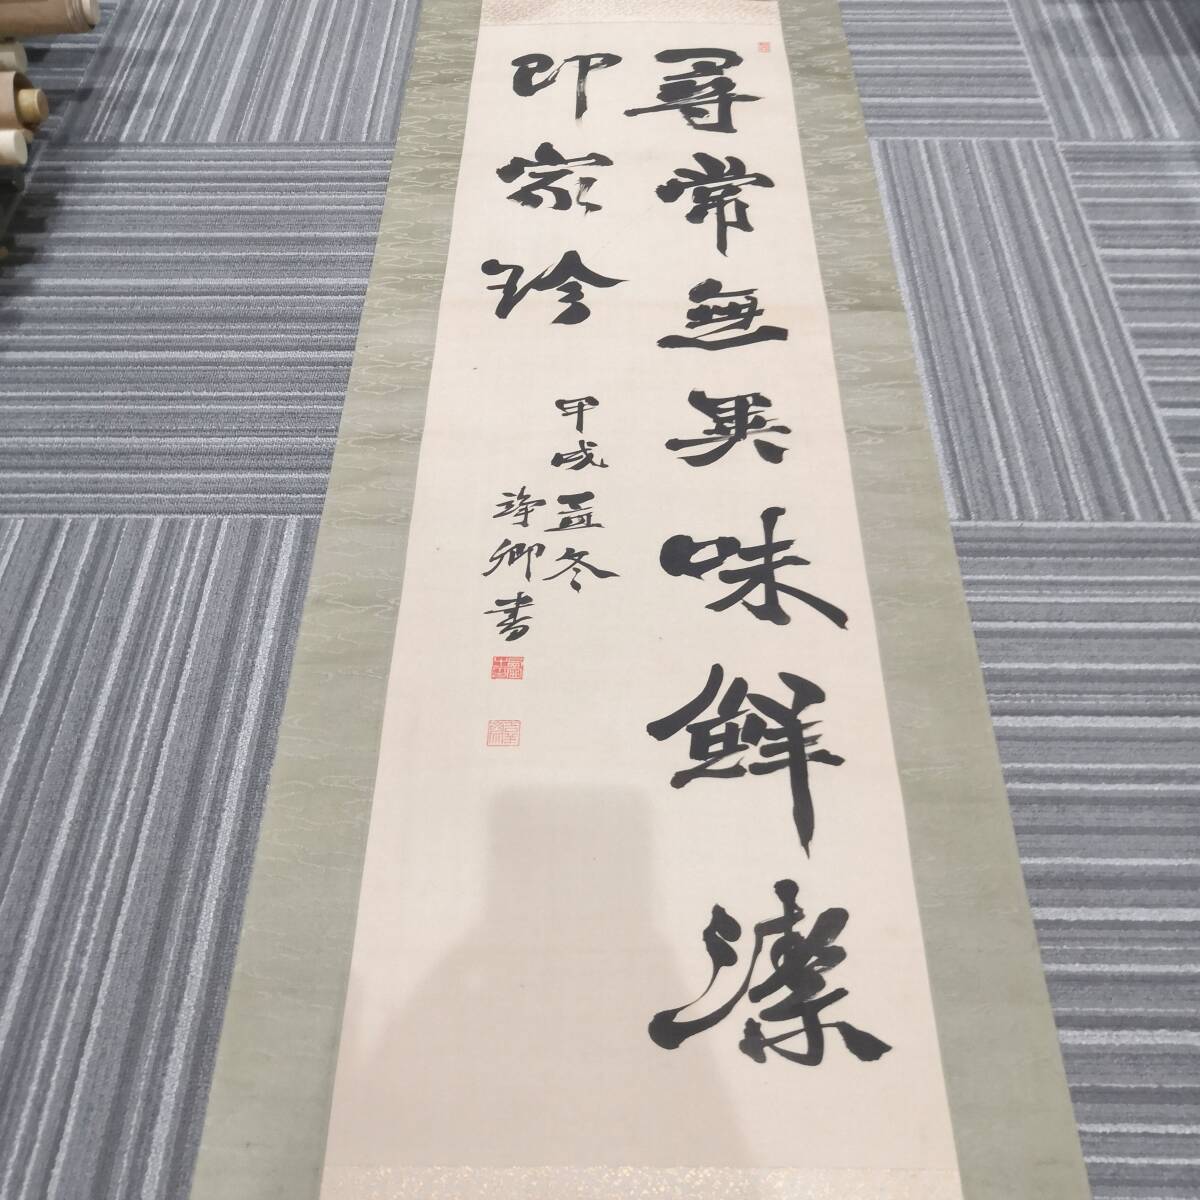 尋常無異味鮮潔
即家珍
甲戌孟冬
淨卿書